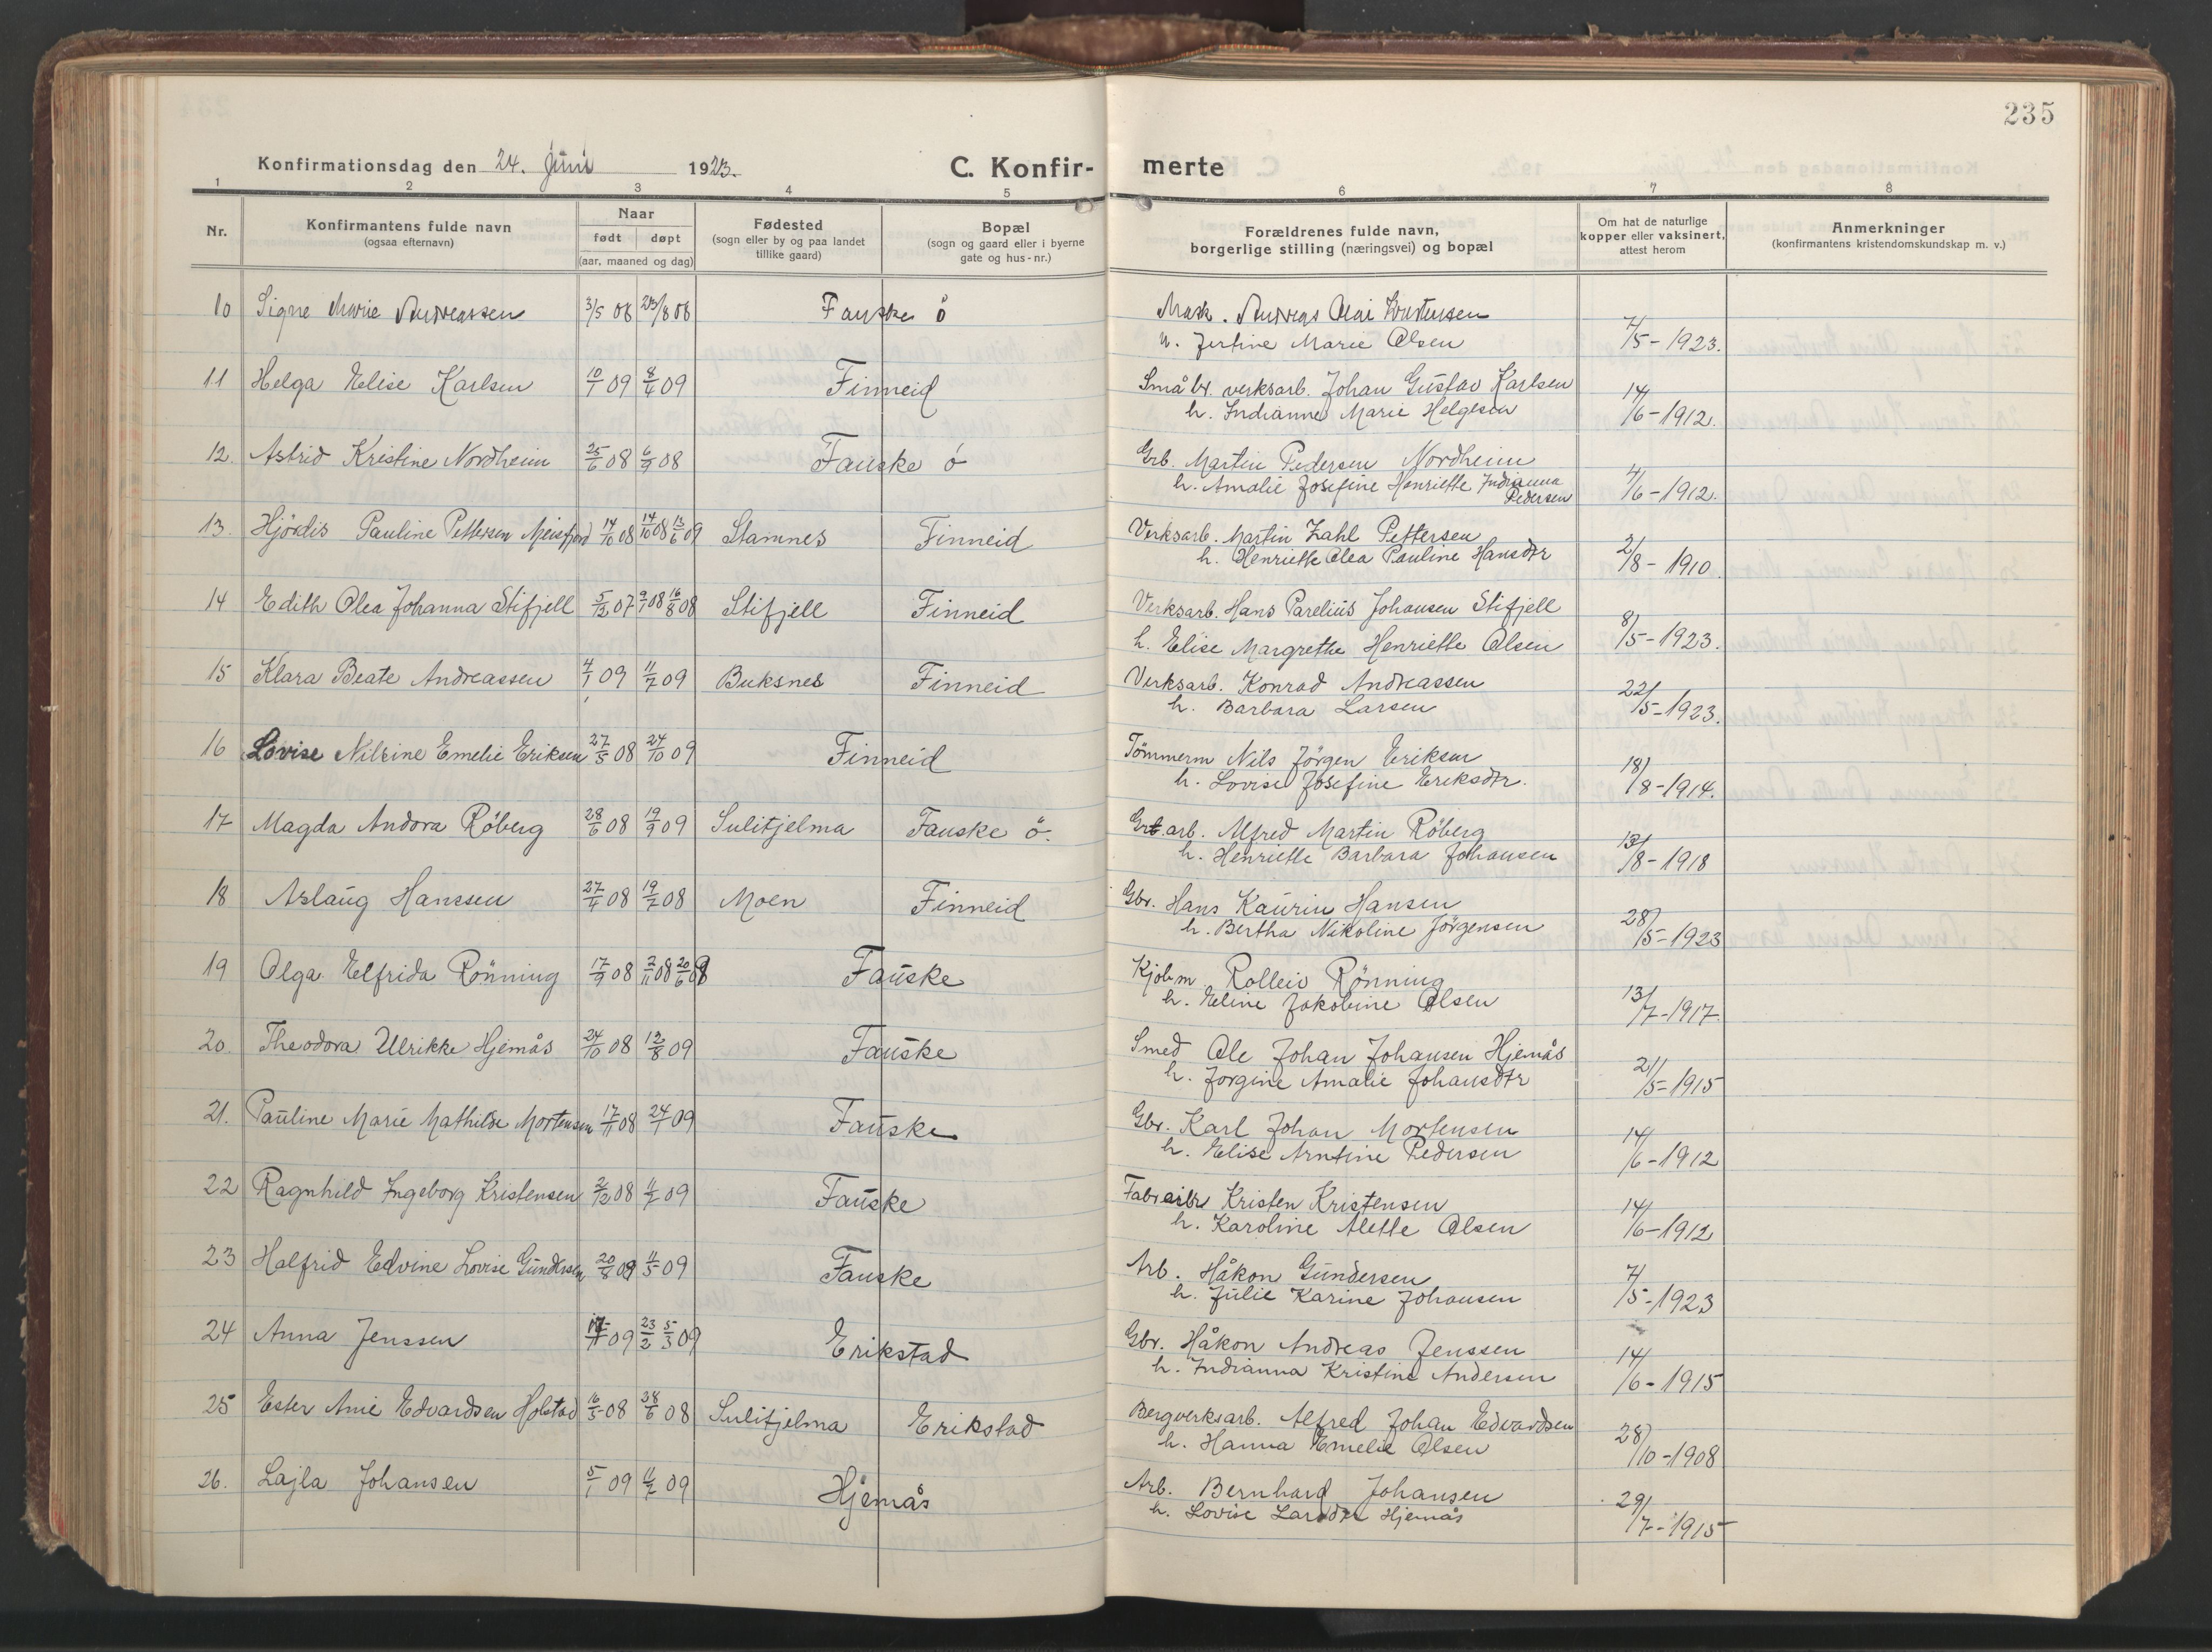 235
Konfirmationsdag den 24. Juni 1923.
C. Konfir-
merte
1 2 3 4 5 6 7 8
Nr.
Konfirmantens fulde navn
(ogsaa efternavn)
Naar
født døpt
(aar, maaned og dag)
Fødested
(sogn eller by og paa landet
tillike gaard)
Bopæl
(sogn og gaard eller i byerne
gate og hus-nr.)
Forældrenes fulde navn,
borgerlige stilling (næringsvei) og bopæl
Om hat de naturlige
kopper eller vaksinert,
attest herom
Anmerkninger
(konfirmantens kristendomskundskap m. v.)
10 Signe Marie Andreassen 3/5 08 23/8 08 Fauske ö Mask. Andreas Olai
Marie Olsen 7/5-1923.
11 Helga Elise Karlsen 10/1 09 8/4 09 Finneid Småbr. verksarb. Johan Gustav Karlsen
h. Indianne Marie Helgesen 14/6-1912.
12. Astrid Kristine Nordheim 25/6 08 6/9 08 Fauske ö Grb. Martin Pedersen Nordheim
h. Amalie Josefine Henriette Indianna
Pedersen 4/6-1912.
13. Hjördis Pauline Pettersen Meisfjord 14/10 08 14/10 08 13/6 09 Stamnes Finneid Verksarb. Martin Zahl Pettersen
h. Henriette Olea Pauline Hansdtr 2/8-1910.
14 Edith Olea Johanna Stifjell 5/12 07 9/1 08 16/8 08 Stifjell Finneid Verksarb. Hans Parelius Johansen Stifjell
h. Elise Margrethe Henriette Olsen 8/5-1923.
15 Klara Beate Andreassen 4/1 09 11/7 09 Buksnes Finneid Verksarb. Konrad Andreassen
h. Barbara Larsen 22/5-1923.
16 Lovise Nilsine Emelie Eriksen 27/5 08 24/10 09 Finneid Tömmerm Nils Jörgen Eriksen
h. Lovise Josefine Eriksdtr. 18/8-1914.
17 Magda Andora Röberg 28/6 08 19/9 09 Sulitjelma Fauske ö. Grt.arb. Alfred Martin Röberg
h. Henriette Barbara Johansen 13/8-1918
18 Aslaug Hanssen 27/4 08 19/7 08 Moen Finneid Gbr. Hans Kaurin Hansen
h. Bertha Nikoline Jörgensen 28/5-1923
19 Olga Elfrida Rönning 17/9 08 2/11 08 20/6 09 Fauske Kjöbm Rolleiv Rönning
h. Eline Jakobine Olsen 13/7-1917.
20. Theodora Ulrikke Hjemås 24/10 08 13/8 09 Fauske Smed Ole Johan Johansen Hjemås
h. Jorgine Amalie Johansdtr 21/5-1915
21. Pauline Marie Mathilde Mortensen 17/11 08 24/1 09 Fauske Gbr. Karl Johan Mortensen
h. Elise Arntine Pedersen 14/6-1912
22 Ragnhild Ingeborg Kristensen 2/12 08 11/7 09 Fauske Kristen Kristensen
h. Karoline Alette Olsen 14/6-1912
23 Halfrid Edvine Lovise Gundersen 20/8 09 11/5 09 Fauske Arb. Håkon Gundersen
h. Julie Karine Johansen 7/5-1923
24 Anna Jenssen 09 23/2 5/3 09 Erikstad Gbr. Håkon Andreas Jenssen
h. Indianna Kristine Andersen 14/6-1915
25 Ester Anie Edvardsen Holstad 16/5 08 28/6 08 Sulitjelma Erikstad Bergverksarb. Alfred Johan Edvardsen
h. Hanna Emelie Olsen 28/10-1908
26. Lajla Johansen 5/1 09 11/7 09 Hjemås Arb. Bernhard Johansen
h. Lovise Larsdtr Hjemås 29/7-1915